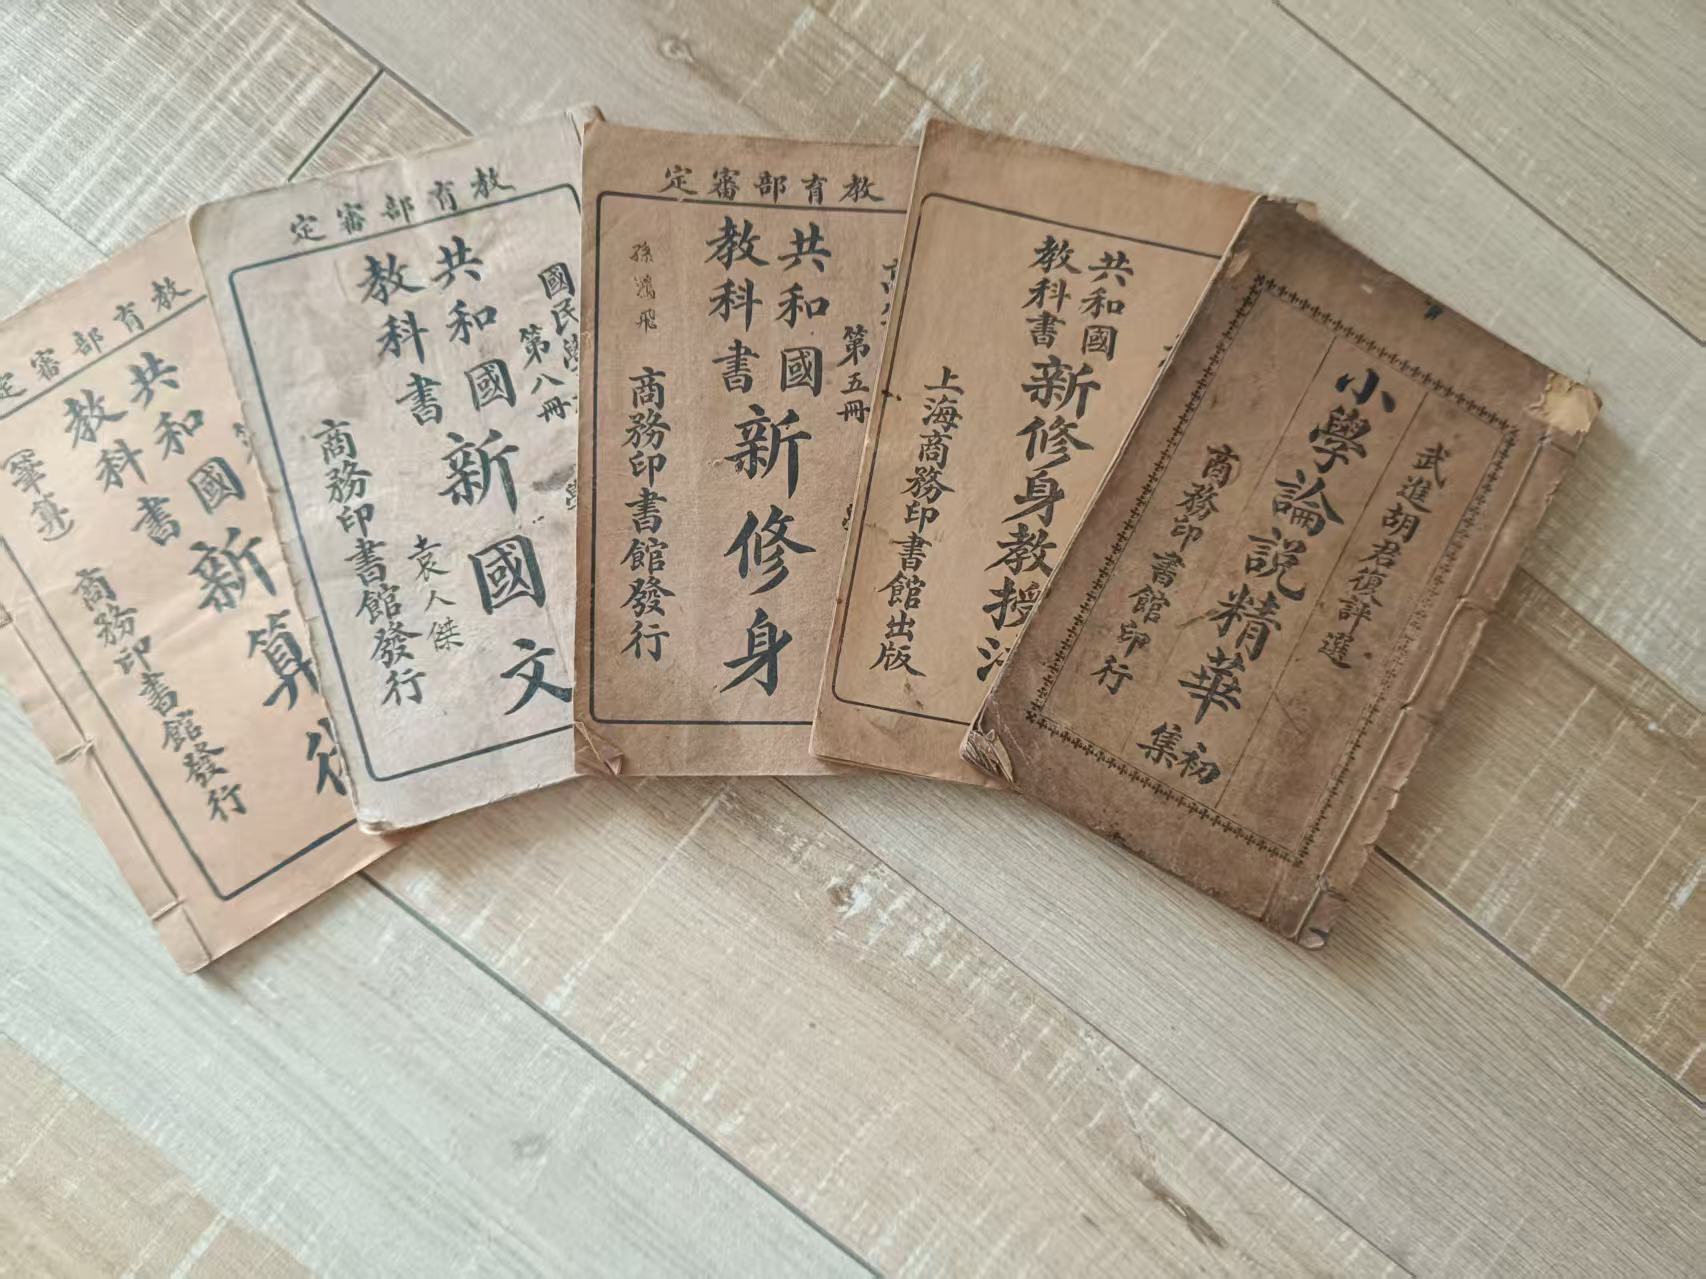 教育部審定
共和國
教科書
新算術
(筆算)
商務印書館發行
教育部審定
國民學
第八冊
共和國
教科書
新國文
袁人傑
商務印書館發行
教育部審定
第五冊
共和國
教科書
新修身
商務印書館發行
孫鴻飛
共和國
教科書
新修身教授法
上海商務印書館出版
武進胡君復評選
小學論說精華
初集
商務印書館印行